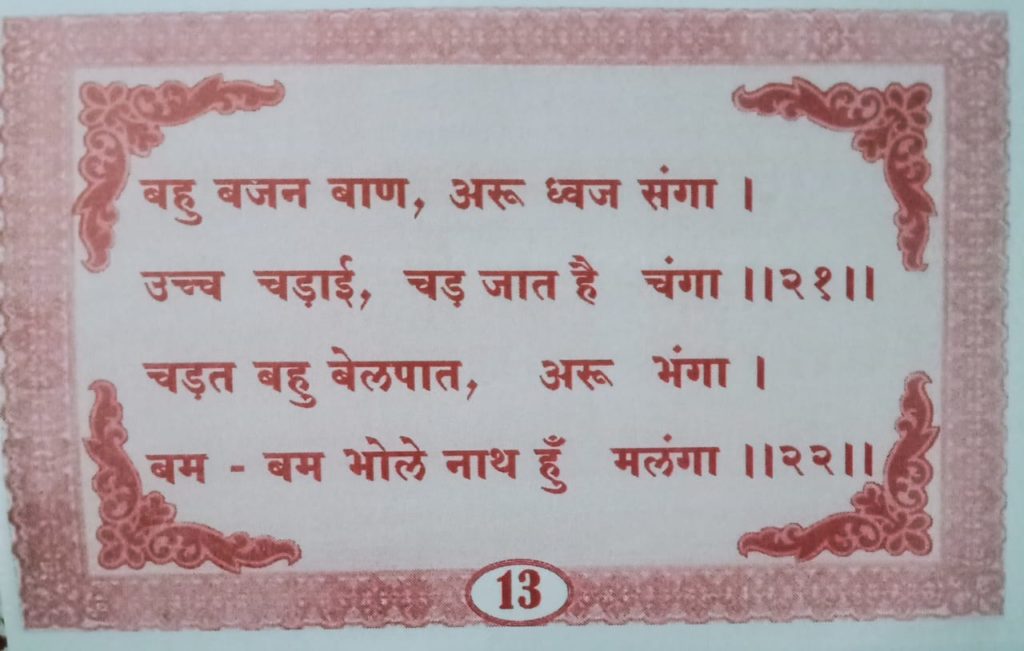 बहु बजन बाण, अरू ध्वज संगा ।
उच्च चड़ाई, चड़ जात है चंगा ।।२१।।
चड़त बहु बेलपात, अरू भंगा ।
बम - बम भोले नाथ हुँ मलंगा ।।२२।।
13